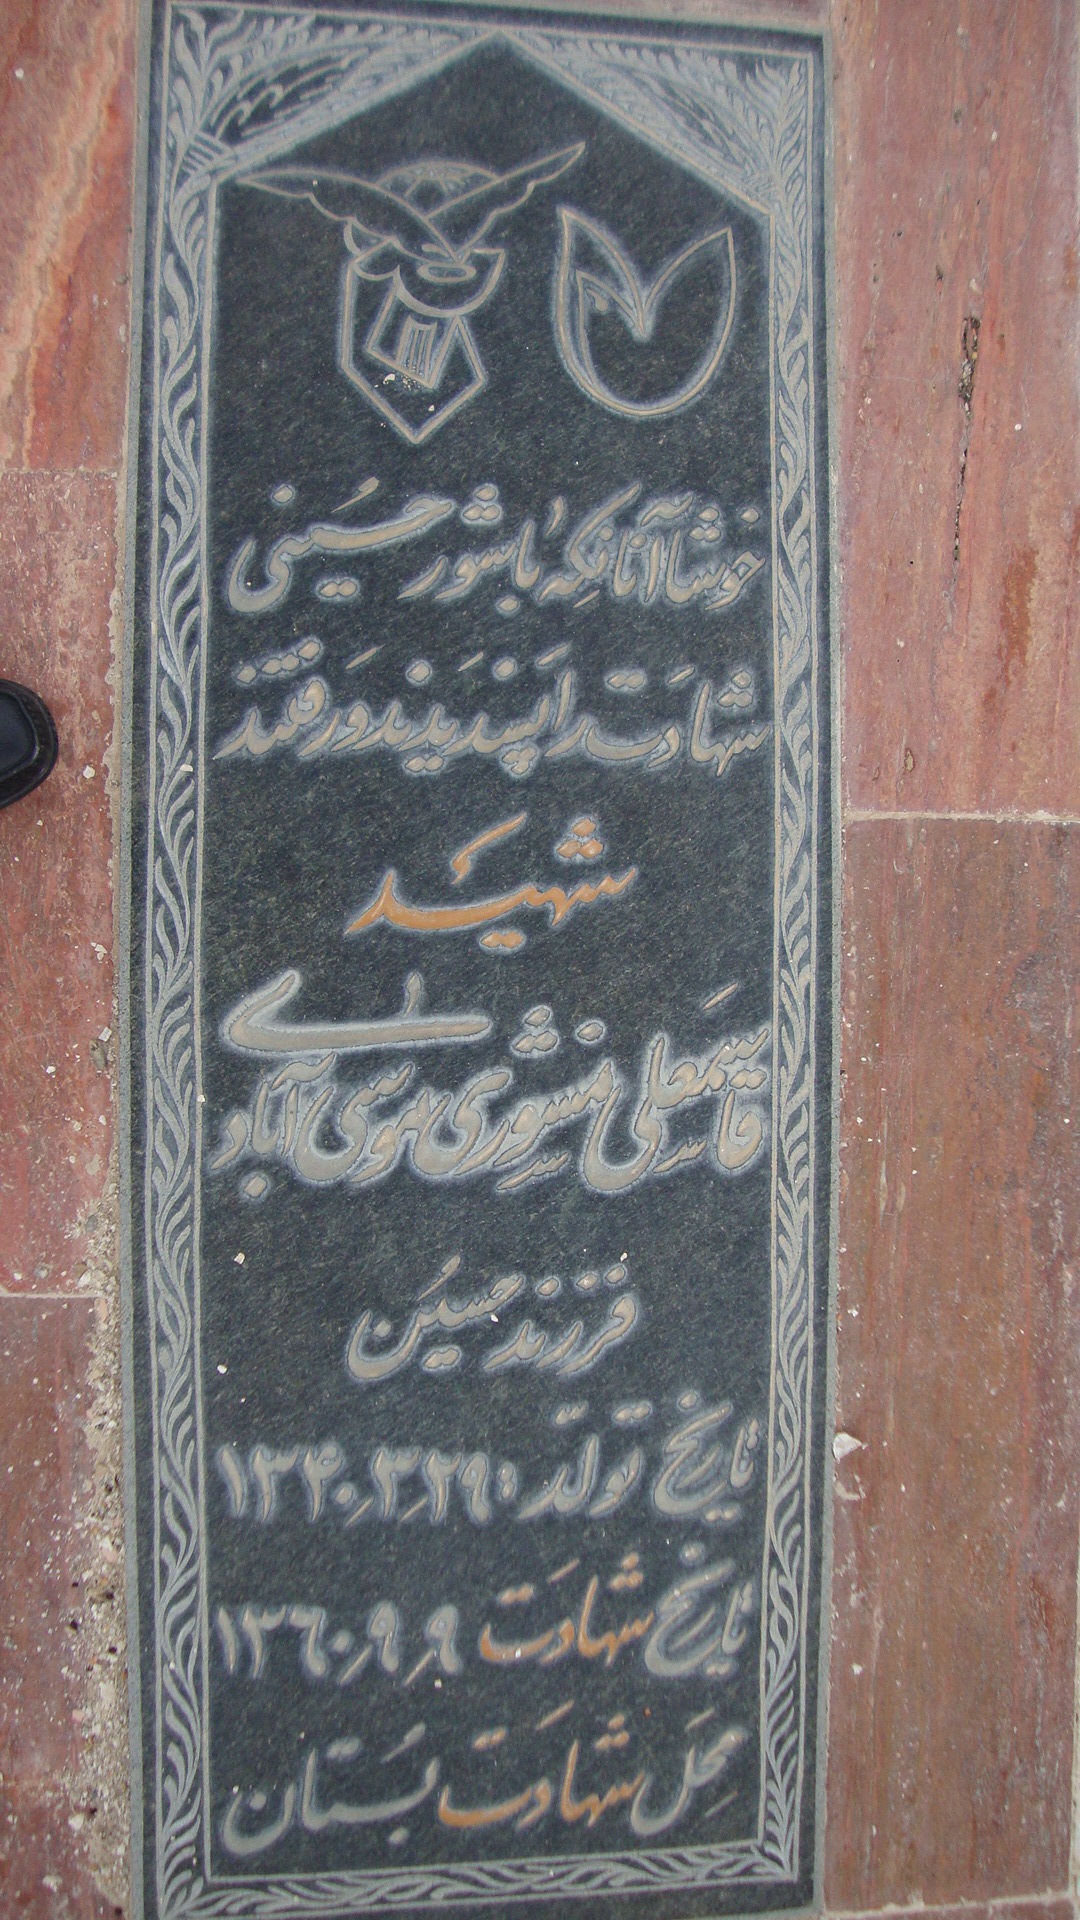 خوشا آنانکه با شور حسینی
شهادت را پسندیدند و رفتند
شهید
قاسمعلی منشوری موسی آبادی
فرزند حسین
تاریخ تولد: ۱۳۴۰٫۳٫۲۹
تاریخ شهادت ۱۳۶۰٫۹٫۹
محل شهادت بستان